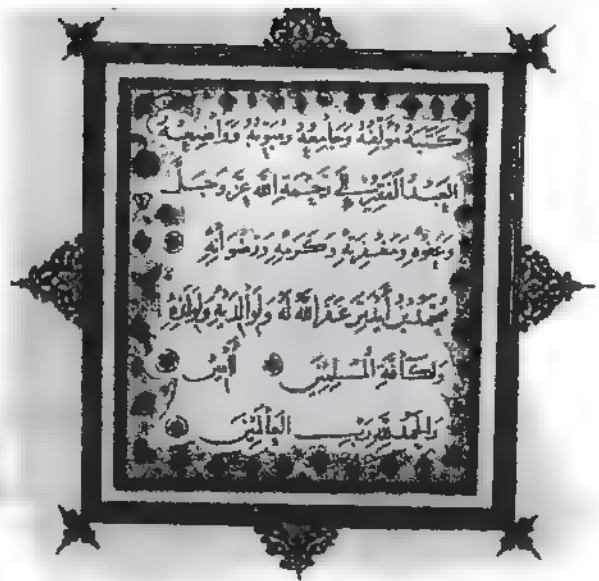 كَتَبَهُ مُؤَلِّفُهُ وَجَامِعُهُ وَمُبَوِّبُهُ وَوَاضِعُهُ
العَبْدُ الفَقِيرُ إِلَى رَحْمَةِ اللهِ عَزَّ وَجَلَّ
وَعَفْوِهِ وَمَغْفِرَتِهِ وَكَرَمِهِ وَرِضْوَانِهِ
مُحَمَّدُ بْنُ أَيْدَمِرَ غَفَرَ اللهُ لَهُ وَلِوَالِدَيْهِ وَلِوَلَدِهِ
وَلِكَافَّةِ الْمُسْلِمِينَ آمِينَ
وَالحَمْدُ للهِ رَبِّ العَالَمِينَ